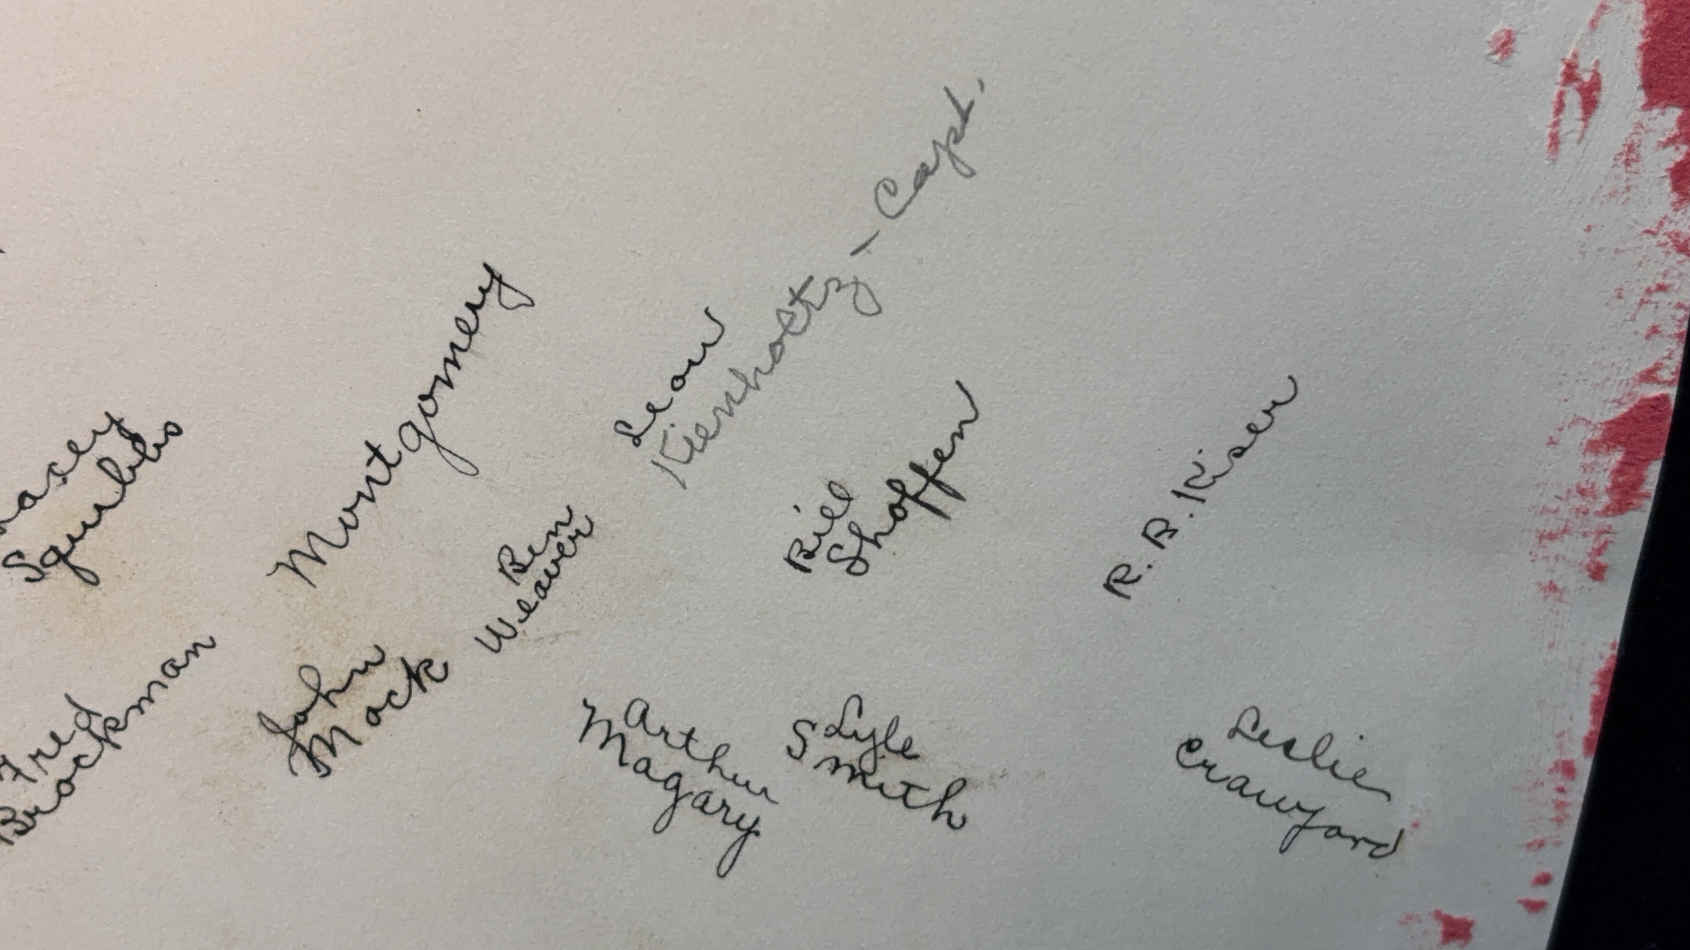 Squibbs
Fred
Brockman
Montgomery
John
Mock
Ben
Weaver
Leon
Kienholtz - Capt.
Bill
Shoffen
R. B. Kiser
Arthur
Magary
Lyle
Smith
Leslie
Crawford